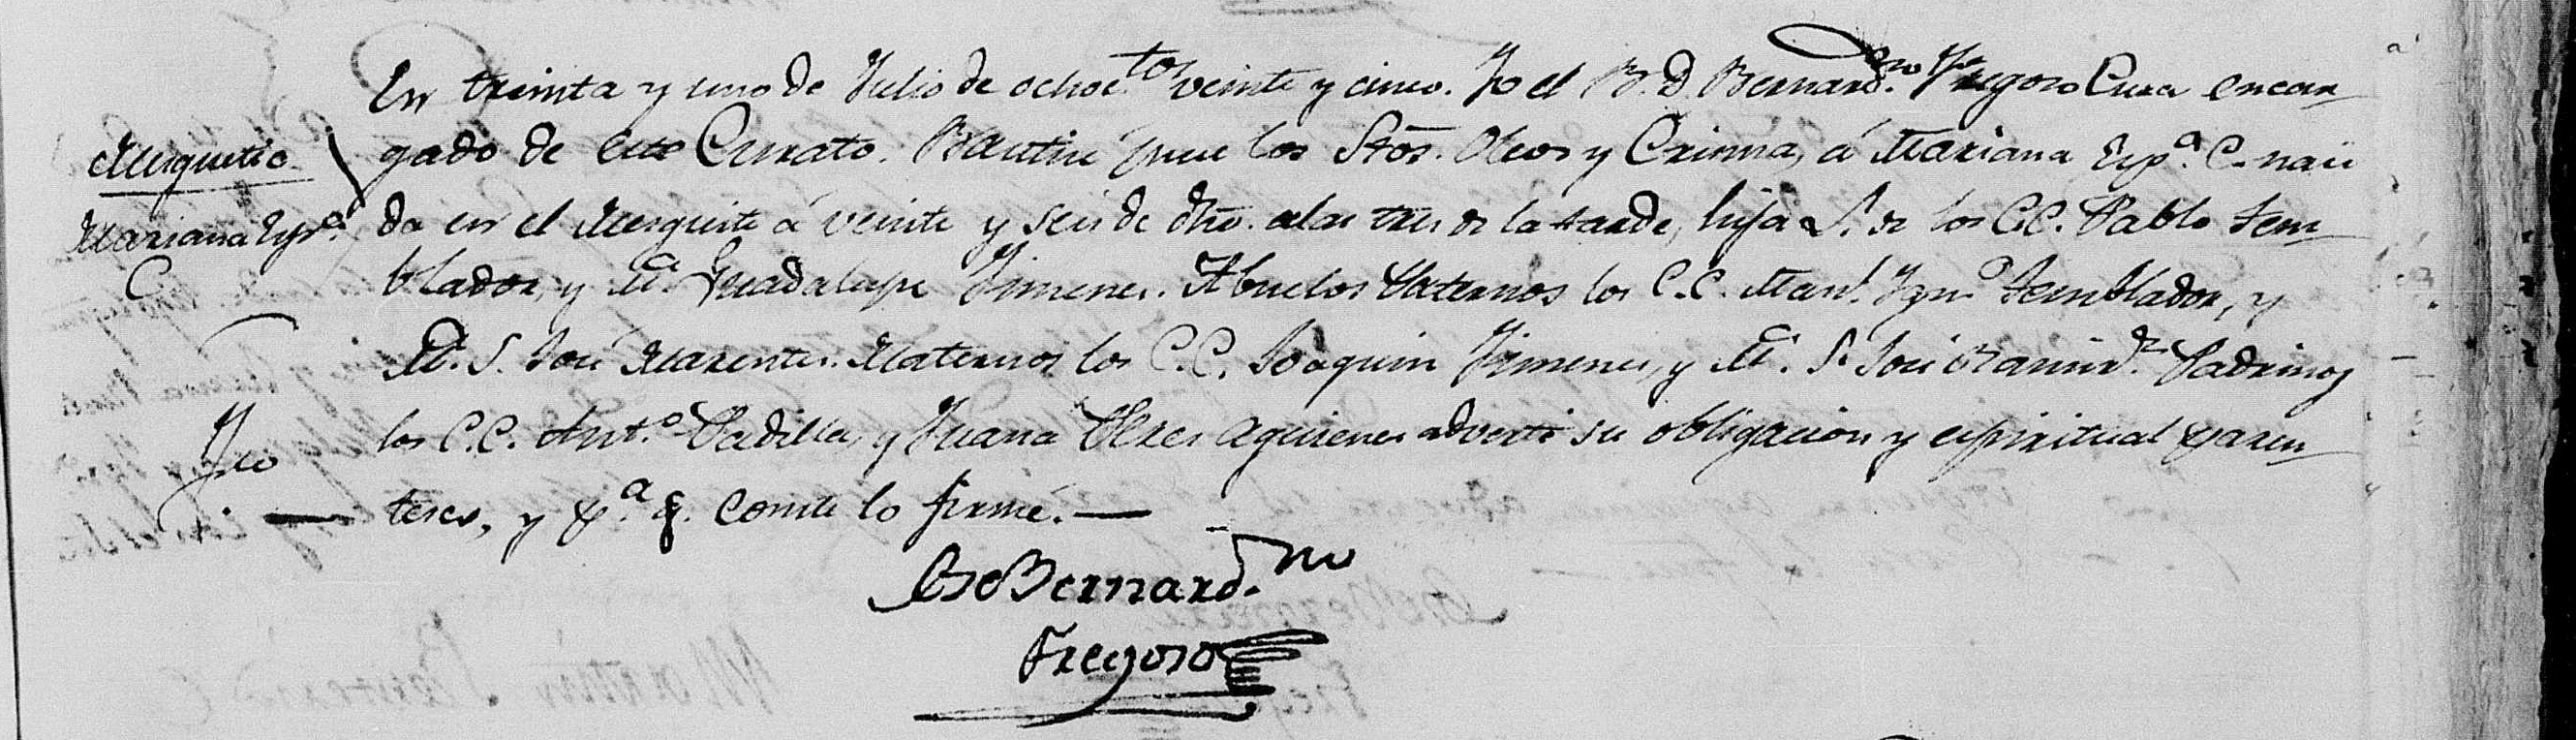 En treinta y uno de Julio de ochoc.tos veinte y cinco. Yo el B. D. Bernard.no Fregoso Cura encar-
Mesquite. gado de este Curato. Bautisé puse los Stōs. Oleos y Crisma, á Mariana Esp.a C. naci
Mariana Esp.a da en el Mesquite á veinte y seis de dho. alas tres de la tarde, hija L. de los C.C. Pablo Sem-
C. blador, y M.a Guadalupe Jimenes. Abuelos Paternos los C.C. Man.l Ygn.o Semblador, y
M.a S. José Marentes. Maternos los C.C. Joaquin Jimenes, y M.a S. José Ramir.z Padrinos
los C.C. Ant.o Padilla, y Juana aquienes advertí su obligacion y espiritual paren-
tesco, y p.a q. conste lo firmé.
Bernard.no
Fregoso